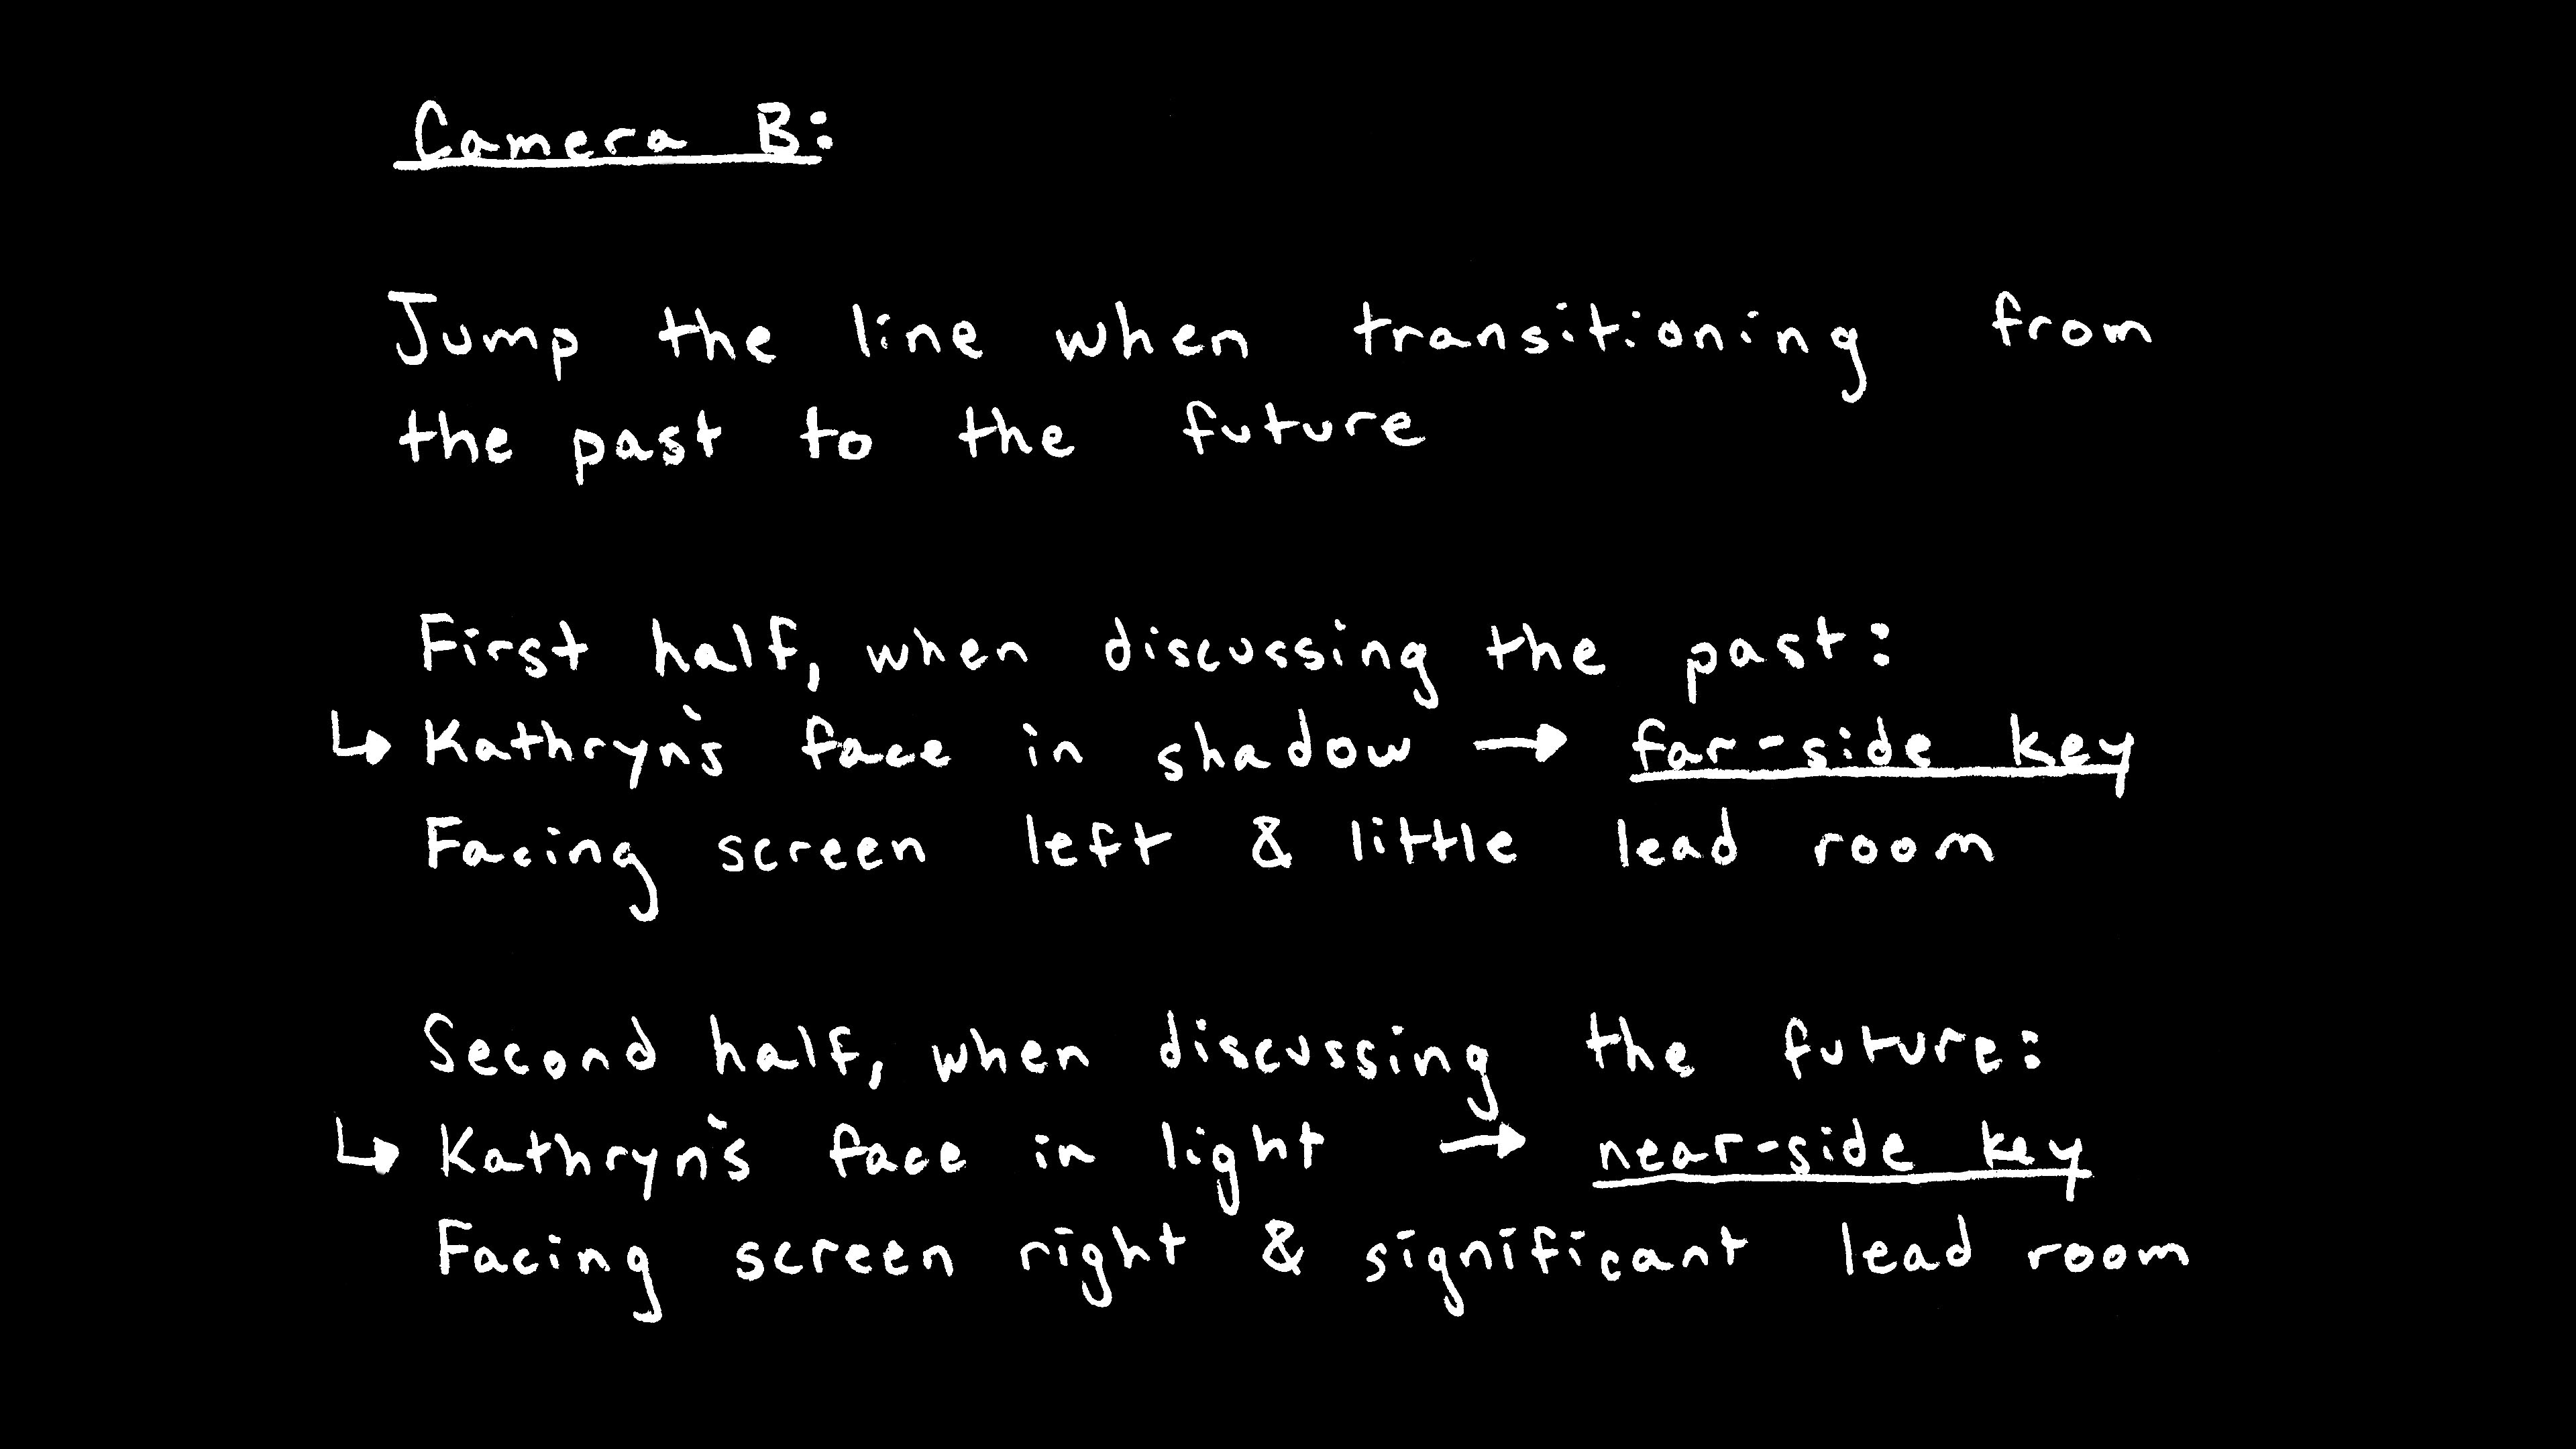 Camera B:
Jump the line when transitioning from
the past to the future
First half, when discussing the past:
↳ Kathryn's face in shadow → far-side key
Facing screen left & little lead room
Second half, when discussing the future:
↳ Kathryn's face in light → near-side key
Facing screen right & significant lead room